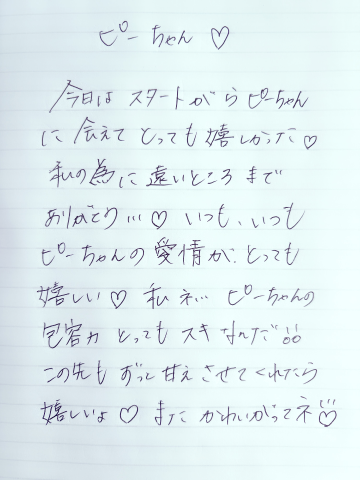 ピーちゃん ♡
今日は スタートから ピーちゃん
に 会えて とっても 嬉しかった♡
私の為に 遠いところ まで
ありがとう…♡ いつも、いつも
ピーちゃんの 愛情が、とっても
嬉しい♡ 私ネ… ピーちゃんの
包容力 とっても スキ なんだ
この先も ずっと 甘え させて くれたら
嬉しいょ♡ また かわいがってネ♡